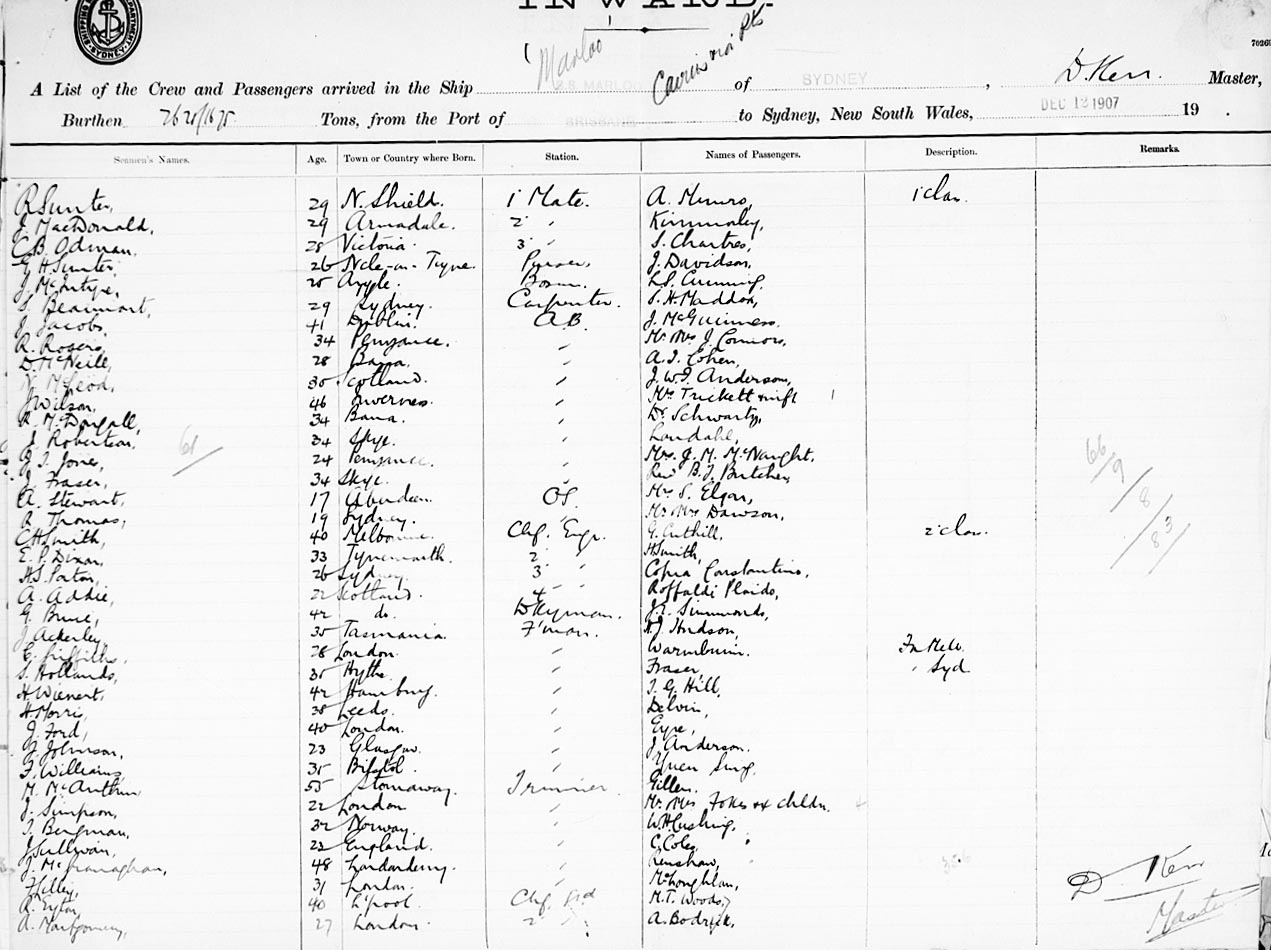 INWARD.
SYDNEY
70266
Marloo S.S. MARLOO
A List of the Crew and Passengers arrived in the Ship of SYDNEY, D. Kerr. Master,
Burthen 2628/1675 Tons, from the Port of BRISBANE to Sydney, New South Wales, DEC 12 1907 19 .
Seamen's Names. Age. Town or Country where Born. Station. Names of Passengers. Description. Remarks.
R Sunter, 29 N. Shield. 1 Mate. A. Munro, 1 clas.
J. MacDonald, 29 Armadale. 2 " Kinmorley,
C. B. Odman, 28 Victoria. 3 " S. Chartres,
G H Sunter, 26 Ncle-on-Tyne. Purser, J. Davidson,
J. McIntyre, 25 Argyle. Bosun. L.S. Cumming,
S. Beaumont, 29 Sydney. Carpenter. S. H. Maddox,
J. Jacobs, 41 Dublin. A.B. J. McGuinness.
R. Rogers, 34 Penzance. " Mr Mrs J. Connors,
D. McNeill, 28 Barra. " A. I. Cohen,
N. McLeod, 30 Scotland. " J. W. I. Anderson,
J Wilson, 46 Inverness. " Mr Trickett & wife 1
R. McDougall, 34 Barra. " Dr. Schwartz,
J. Robertson, 34 Skye. " Londahl,
61
J. I. Jones, 24 Penzance. " Mrs. J. M. McNaught,
66/9/8/83
J. Fraser, 34 Skye. " Rev B. J. Butcher,
A. Stewart, 17 Aberdeen. OS. Mr S. Elgar,
R. Thomas, 19 Sydney. " Mr Mrs Dawson,
C H Smith, 40 Melbourne. Chf. Engr. G. Cuthill, 2 clas.
E. P. Dixon, 33 Tynemouth. 2 " H Smith,
H. S. Paton, 26 Sydney. 3 " Copra Constantino,
A. Addie, 22 Scotland. 4 " Roffaldi Plaido,
G. Bruce, 42 do. Dkyman. J. E. Simmonds,
J. Ackerley, 35 Tasmania. F'man. H. J. Hudson,
E. Griffiths, 28 London. " Warmbunn. Fr Melb.
S. Hollands, 35 Hythe. " Fraser " Syd
H. Wienert, 42 Hamburg. " T. G. Hill,
H. Morris, 38 Leeds. " Delvin,
J. Ford, 40 London. " Eyre,
J. Johnson, 23 Glasgow. " J. Anderson.
F. Williams, 35 Bristol. " Yuen Sing.
M. McArthur 55 Stornaway. Trimmer. Gillen.
J. Simpson, 22 London " Mr. Mrs Fokes & 4 chldn.
T. Bergman, 32 Norway. " W. H. Cushing,
J Sullivan, 22 England. " C. Coles,
J. McGranaghan, 48 Londonderry. " Renshaw,
F Lilley, 31 London. " McLoughlan, D. Kerr
R. Eyton, 40 L'pool. Chf. Std M. T. Woods, Master
A. Montgomery, 27 London. 2 " A. Bodrick,